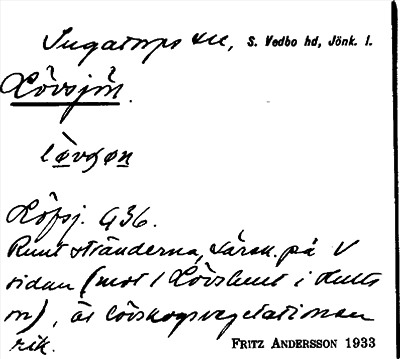 Ingatorps sn, S. Vedbo hd, Jönk. l.
Lövsjön.
Löfsj. G36.
Runt stränderna, särsk. på V
sidan (mot Lövhult i Hults
sn), är lövskogsvegetationen
rik. FRITZ ANDERSSON 1933